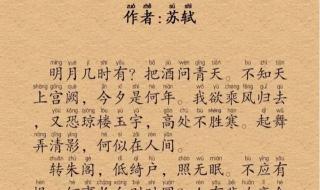 zuò zhě sū shì
作者:苏轼
míng yuè jǐ shí yǒu bǎ jiǔ wèn qīng tiān bù zhī tiān
明月几时有?把酒问青天。不知天
shàng gōng què jīn xī shì hé nián wǒ yù chéng fēng guī qù
上宫阙,今夕是何年。我欲乘风归去
yòu kǒng qióng lóu yù yǔ gāo chù bù shèng hán qǐ wǔ
,又恐琼楼玉宇,高处不胜寒。起舞
nòng qīng yǐng hé sì zài rén jiān
弄清影,何似在人间。
zhuǎn zhū gé dī qǐ hù zhào wú mián bù yīng yǒu
转朱阁,低绮户,照无眠。不应有